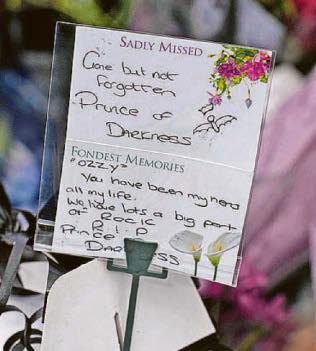 SADLY MISSED
Gone but not
forgotten
Prince of
Darkness
FONDEST MEMORIES
"OZZY"
You have been my hero
all my life.
We have lots a big part
OF ROCK
R.I.P
Prince
Darkness